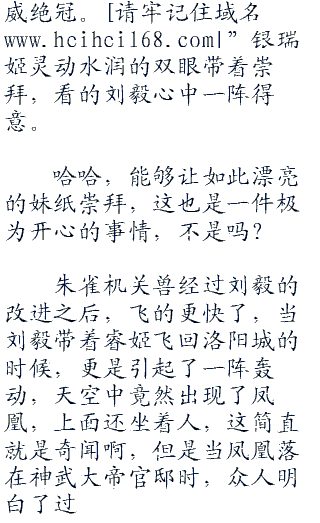 威绝冠。[请牢记住域名
www.hcihci168.com|”银瑞
姬灵动水润的双眼带着崇
拜，看的刘毅心中一阵得
意。
哈哈，能够让如此漂亮
的妹纸崇拜，这也是一件极
为开心的事情，不是吗？
朱雀机关兽经过刘毅的
改进之后，飞的更快了，当
刘毅带着睿姬飞回洛阳城的
时候，更是引起了一阵轰
动，天空中竟然出现了凤
凰，上面还坐着人，这简直
就是奇闻啊，但是当凤凰落
在神武大帝官邸时，众人明
白了过